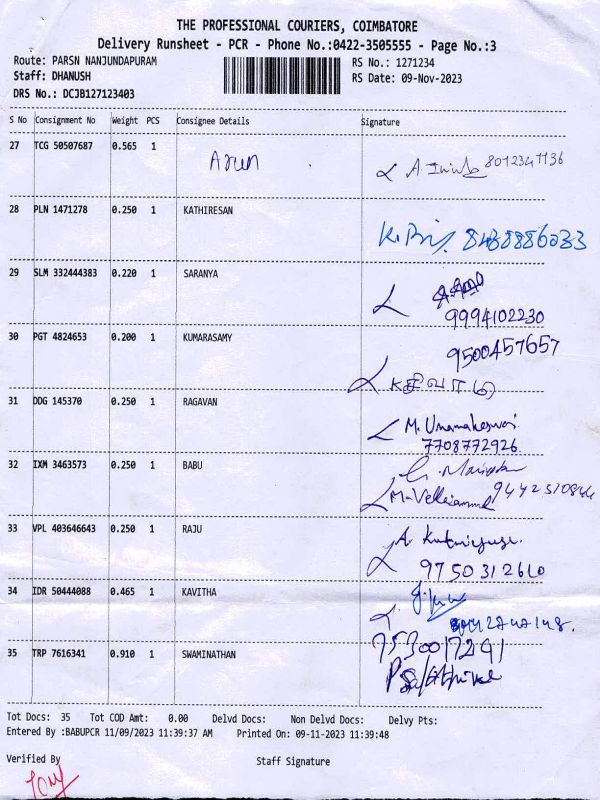 THE PROFESSIONAL COURIERS, COIMBATORE
Delivery Runsheet - PCR - Phone No.:0422-3505555 - Page No.:3
Route: PARSN NANJUNDAPURAM
RS No.: 1271234
Staff: DHANUSH
RS Date: 09-Nov-2023
DRS No.: DCJB127123403
S No Consignment No Weight PCS Consignee Details Signature
27 TCG 50507687 0.565 1 Arun
28 PLN 1471278 0.250 1 KATHIRESAN
29 SLM 332444383 0.220 1 SARANYA
9994102230
30 PGT 4824653 0.200 1 KUMARASAMY
9500457657
31 DDG 145370 0.250 1 RAGAVAN
M. Umamaheswari
7708772926
32 IXM 3463573 0.250 1 BABU
M-Vellaiammal
33 VPL 403646643 0.250 1 RAJU
9750312610
34 IDR 50444088 0.465 1 KAVITHA
35 TRP 7616341 0.910 1 SWAMINATHAN
Tot Docs: 35 Tot COD Amt: 0.00 Delvd Docs: Non Delvd Docs: Delvy Pts:
Entered By :BABUPCR 11/09/2023 11:39:37 AM Printed On: 09-11-2023 11:39:48
Verified By Staff Signature